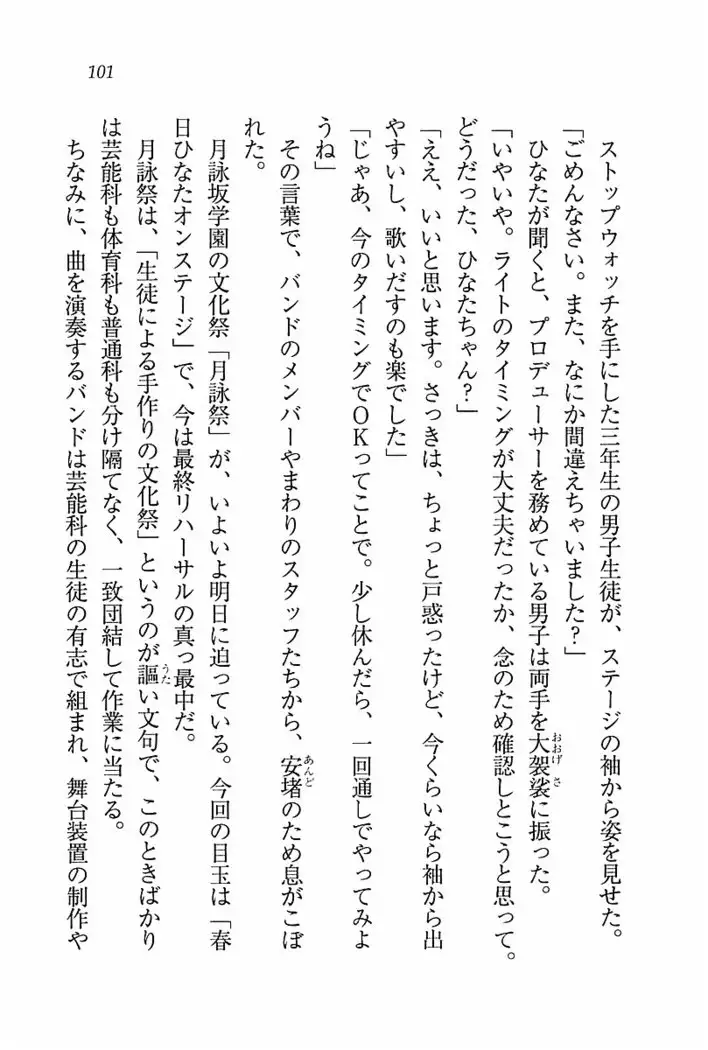 101
ストップウォッチを手にした三年生の男子生徒が、ステージの袖から姿を見せた。
「ごめんなさい。また、なにか間違えちゃいました？」
ひなたが聞くと、プロデューサーを務めている男子は両手を大袈裟に振った。
「いやいや。ライトのタイミングが大丈夫だったか、念のため確認しとこうと思って。
どうだった、ひなたちゃん？」
「ええ、いいと思います。さっきは、ちょっと戸惑ったけど、今くらいなら袖から出
やすいし、歌いだすのも楽でした」
「じゃあ、今のタイミングでＯＫってことで。少し休んだら、一回通しでやってみよ
うね」
その言葉で、バンドのメンバーやまわりのスタッフたちから、安堵のため息がこぼ
れた。
月詠坂学園の文化祭「月詠祭」が、いよいよ明日に迫っている。今回の目玉は「春
日ひなたオンステージ」で、今は最終リハーサルの真っ最中だ。
月詠祭は、「生徒による手作りの文化祭」というのが謳い文句で、このときばかり
は芸能科も体育科も普通科も分け隔てなく、一致団結して作業に当たる。
ちなみに、曲を演奏するバンドは芸能科の生徒の有志で組まれ、舞台装置の制作や